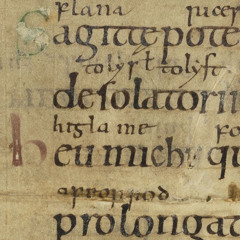 flana
Sagitte pote
to lysꞇ to lysꞇ
desolatorii
hig la me
heu michi qu
afeorrod
prolongat